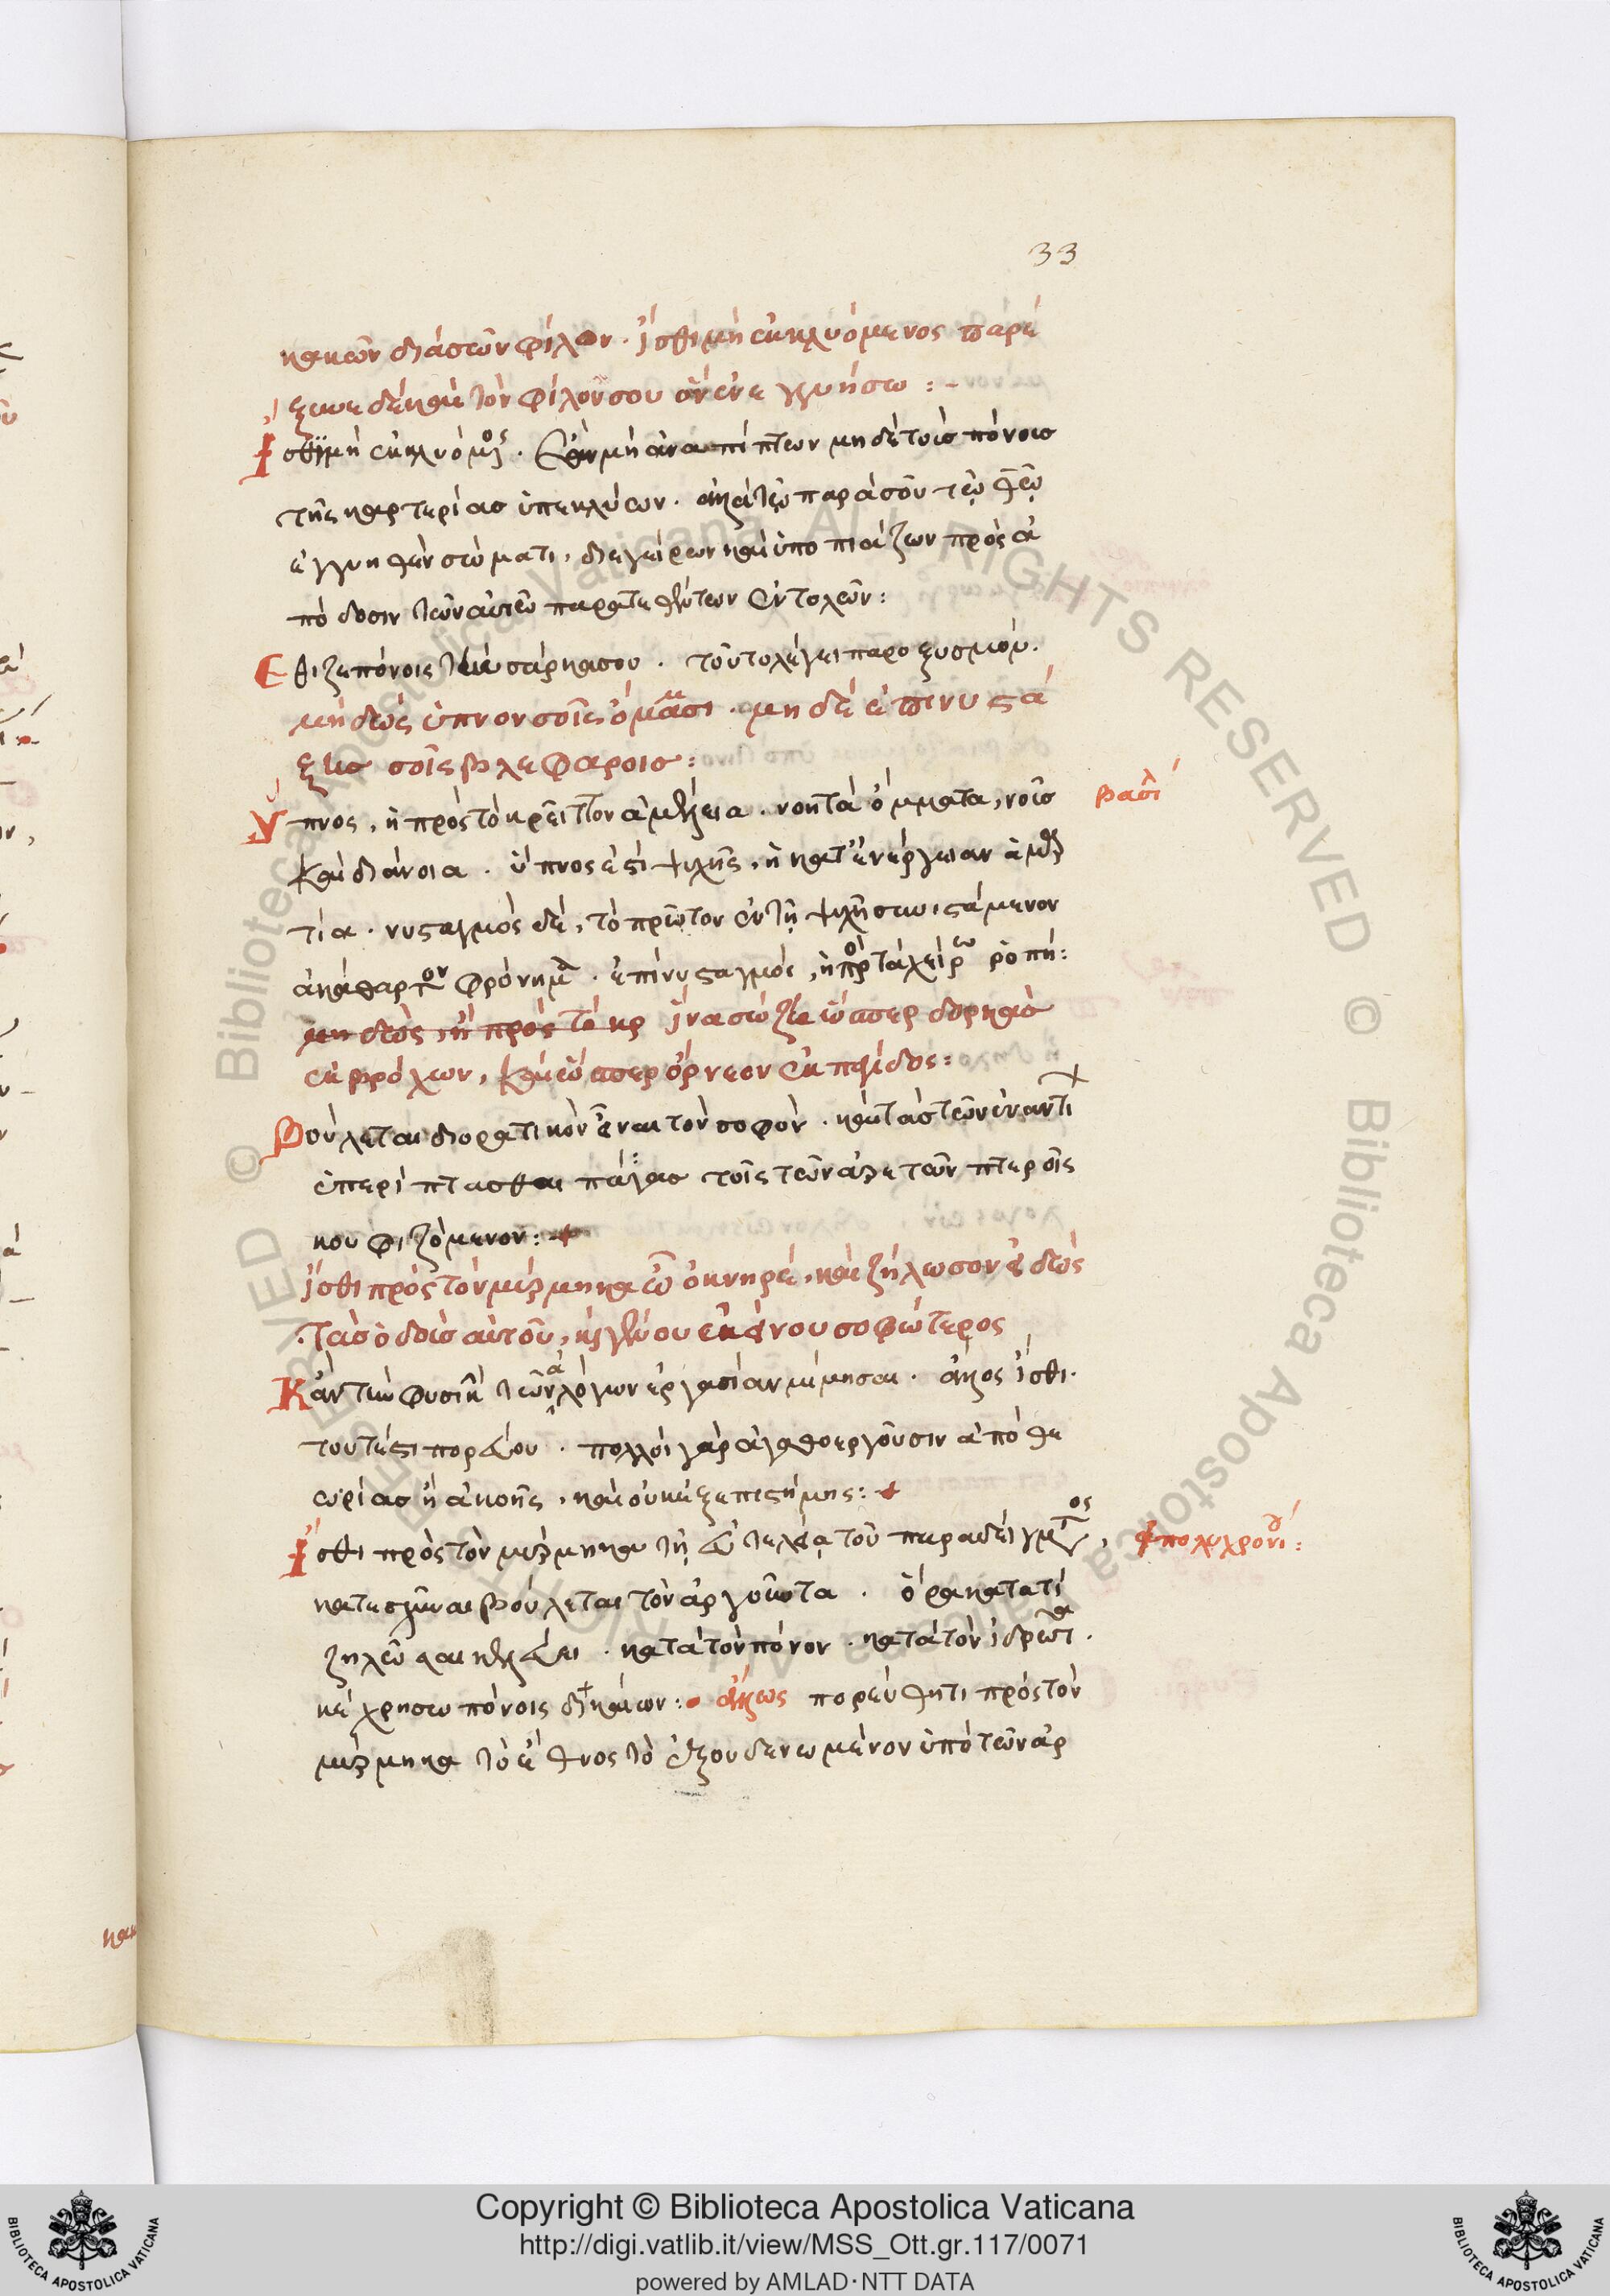 33
κακῶν διὰ σῶν φίλον · ἴσθι μὴ ἐκλυόμενος παρό
ξυνε δὲ καὶ τὸν φίλον σου ὃν ἐνεγγυήσω :-
Ἴσθι μὴ ἐκλυόμενος · μὴ ἀναπίπτων μηδὲ τοῖς πόνοις
τῆς καρτερίας ὑπεκλύων · ἀλλὰ τῷ παρὰ σοῦ τῷ θεῷ
ἐγγυηθὲν στόματι, διεγείρων καὶ ὑποπιάζων πρὸς ἀ
πόδοσιν τῶν αὐτῶ παρατεθέντων ἐντολῶν :
Ἔθιζε πόνοις τὴν σάρκα σου · τοῦτο λέγει παροξυσμόν.
μὴ δῶς ὕπνον σοῖς ὄμμασι · μηδὲ ἐπινυστά
ξῃς σοῖς βλεφάροις :
Ὕπνος, ἡ πρὸς τὸ κρεῖττον ἀμέλεια · νοητὰ ὄμματα, νοῦς
βασι
καὶ διάνοια · ὕπνος ἐστὶ ψυχῆς, ἡ κατ' ἐνέργειαν ἁμαρ
τία · νυσταγμὸς δὲ, τὸ πρῶτον ἐν τῇ ψυχῇ συνιστάμενον
ἀκάθαρτον φρόνημα · ἐπινυσταγμὸς, ἡ πρὸς τὰ χείρω ῥοπή :
μη δῶς, ἡ πρὸς τὸ κρ ἵνα σώζῃ ὥσπερ δορκὰς
ἐκ βρόχων, καὶ ὥσπερ ὄρνεον ἐκ παγίδος :
Βούλεται διορατικὸν εἶναι τὸν σοφὸν · καὶ τὰς τῶν ἐναντί
ὑπερίπτασθαι πάγας τοῖς τῶν ἀρετῶν πτεροῖς
κουφιζόμενον :
ἴσθι πρὸς τὸν μύρμηκα ὦ ὀκνηρὲ, καὶ ζήλωσον ἰδὼν
τὰς ὁδοὺς αὐτοῦ, καὶ γενοῦ ἐκείνου σοφώτερος
Κἂν τὴν φυσικὴν τῶν ἀλόγων ἐργασίαν μίμησαι · ἄλλος ἴσθι ·
τουτέστι πορεύου · πολλοὶ γὰρ ἀγαθοεργοῦσιν ἀπὸ θε
ωρίας ἢ ἀκοῆς, καὶ οὐκ ἐξ ἐπιστήμης :
Ἴσθι πρὸς τὸν μύρμηκα τῇ εὐτελείᾳ τοῦ παραδείγματος,
πολυχρονί :
καταισχῦναι βούλεται τὸν ἀργοῦντα · ὅρα κατὰ τί
ζηλῶσαι κελεύει · κατὰ τὸν πόνον · κατὰ τὸν ἱδρῶτα.
κέχρησω πόνοις δικαίων : ἄλλως πορεύθητι πρὸς τὸν
μύρμηκα τὸ ἔθνος τὸ ἐξουδενωμένον ὑπὸ τῶν ἀρ
Copyright © Biblioteca Apostolica Vaticana
http://digi.vatlib.it/view/MSS_Ott.gr.117/0071
powered by AMLAD·NTT DATA